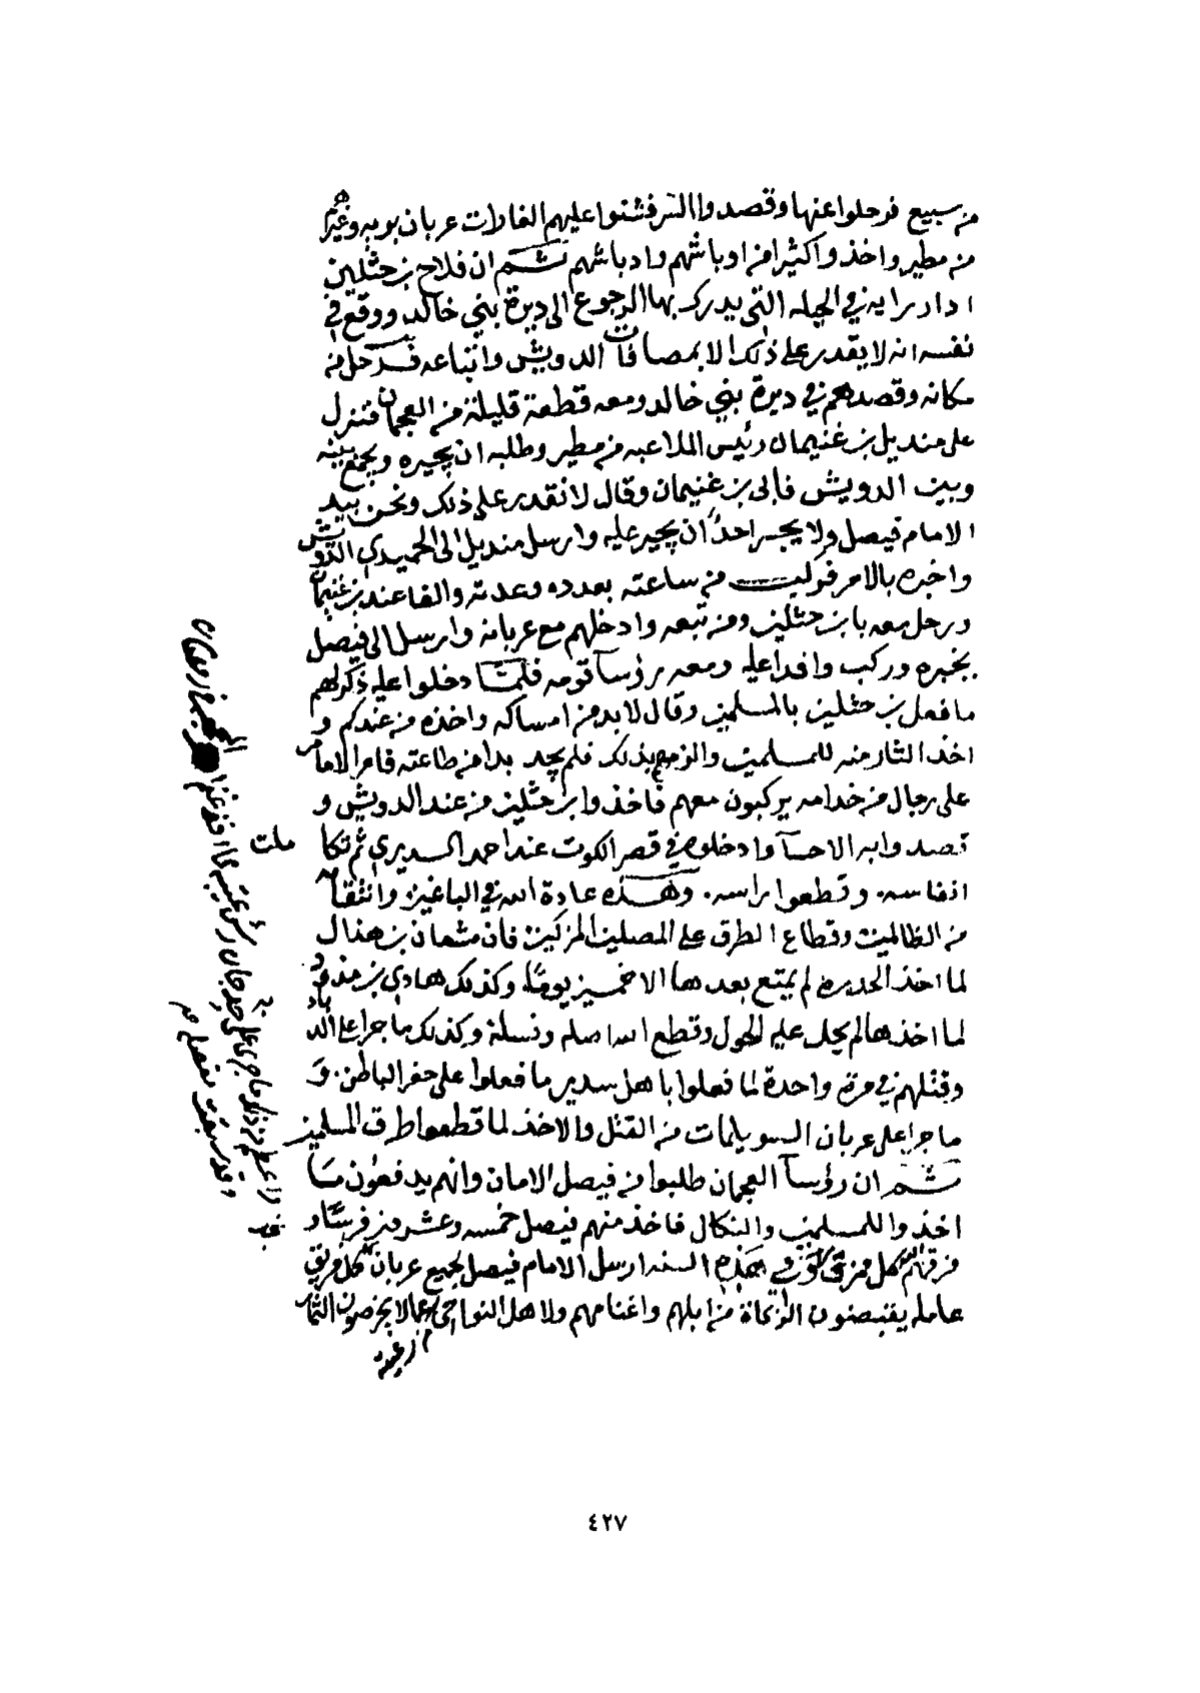 من سبيع فرحلوا عنها وقصدوا السر فشنوا عليهم الغارات عربان بويه وغيرهم
من مطير واخذوا كثيرا من اوباشهم وادباشهم ثم ان فلاح بن حثلين
ادار رايه في الحيله التي يدرك بها الرجوع الى ديرة بني خالد ووقع في
نفسه انه لا يقدر على ذلك الا بمصافات الدويش واتباعه فرحل من
مكانه وقصدهم في ديرة بني خالد ومعه قطعة قليلة من العجمان فنزل
على منديل بن غنيمان رئيس الملاعبه من مطير وطلبه ان يجيره ويجمع بينه
وبين الدويش فابى بن غنيمان وقال لا نقدر على ذلك ونحن بيد
الامام فيصل ولا يجسر احدٌ ان يجير عليه وارسل منديل الى الحميدي الدويش
واخبره بالامر فركب من ساعته بعدده وعدته والفا عند بن غنيمان
ورحل معه بابن حثلين ومن تبعه وادخلهم مع عربانه وارسل الى فيصل
يخبره وركب وافدا عليه ومعه رؤسا قومه فلما دخلوا عليه ذكر لهم
ما فعل بن حثلين بالمسلمين وقال لا بد من امساكه واخذه من عندكم و
اخذ الثار منه للمسلمين والزمهم بذلك فلم يجد بدا من طاعته فامر الامام
على رجال من خدامه يركبون معهم فاخذوا بن حثلين من عند الدويش و
قصدوا به الاحسآ وادخلوه في قصر الكوت عند احمد السديري ثم تكا
ملت
انفاسه وقطعوا راسه. وهذه عادة الله في الباغين وانتقام
من الظالمين وقطاع الطرق على المصلين المزكين فان مشعان بن هذال
لما اخذ الحدره لم يمتع بعدها الا خمسين يومًا وكذلك هادي بن مذود
لما اخذها لم يحل عليه الحول وقطع الله اصله ونسله وكذلك ما جرا على
وقتلهم في مرة واحدة لما فعلوا باهل سدير ما فعلوا على حفر الباطن. وَ
ما جرا على عربان السويلمات من القتل والاخذ لما قطعوا طرق المسلمين
ثم ان رؤسآ العجمان طلبوا من فيصل الامان وانهم يدفعون ما
اخذوا للمسلمين والنكال فاخذ منهم فيصل خمسه وعشرين فرسًا و
مزقهم الله كل ممزق وفي هذه السنه ارسل الامام فيصل لجميع عربان كل فريق
عامله يقبضون الزكاة من ابلهم واغنامهم ولاهل النواحي عمالا يخرصون الثمار
٤٢٧